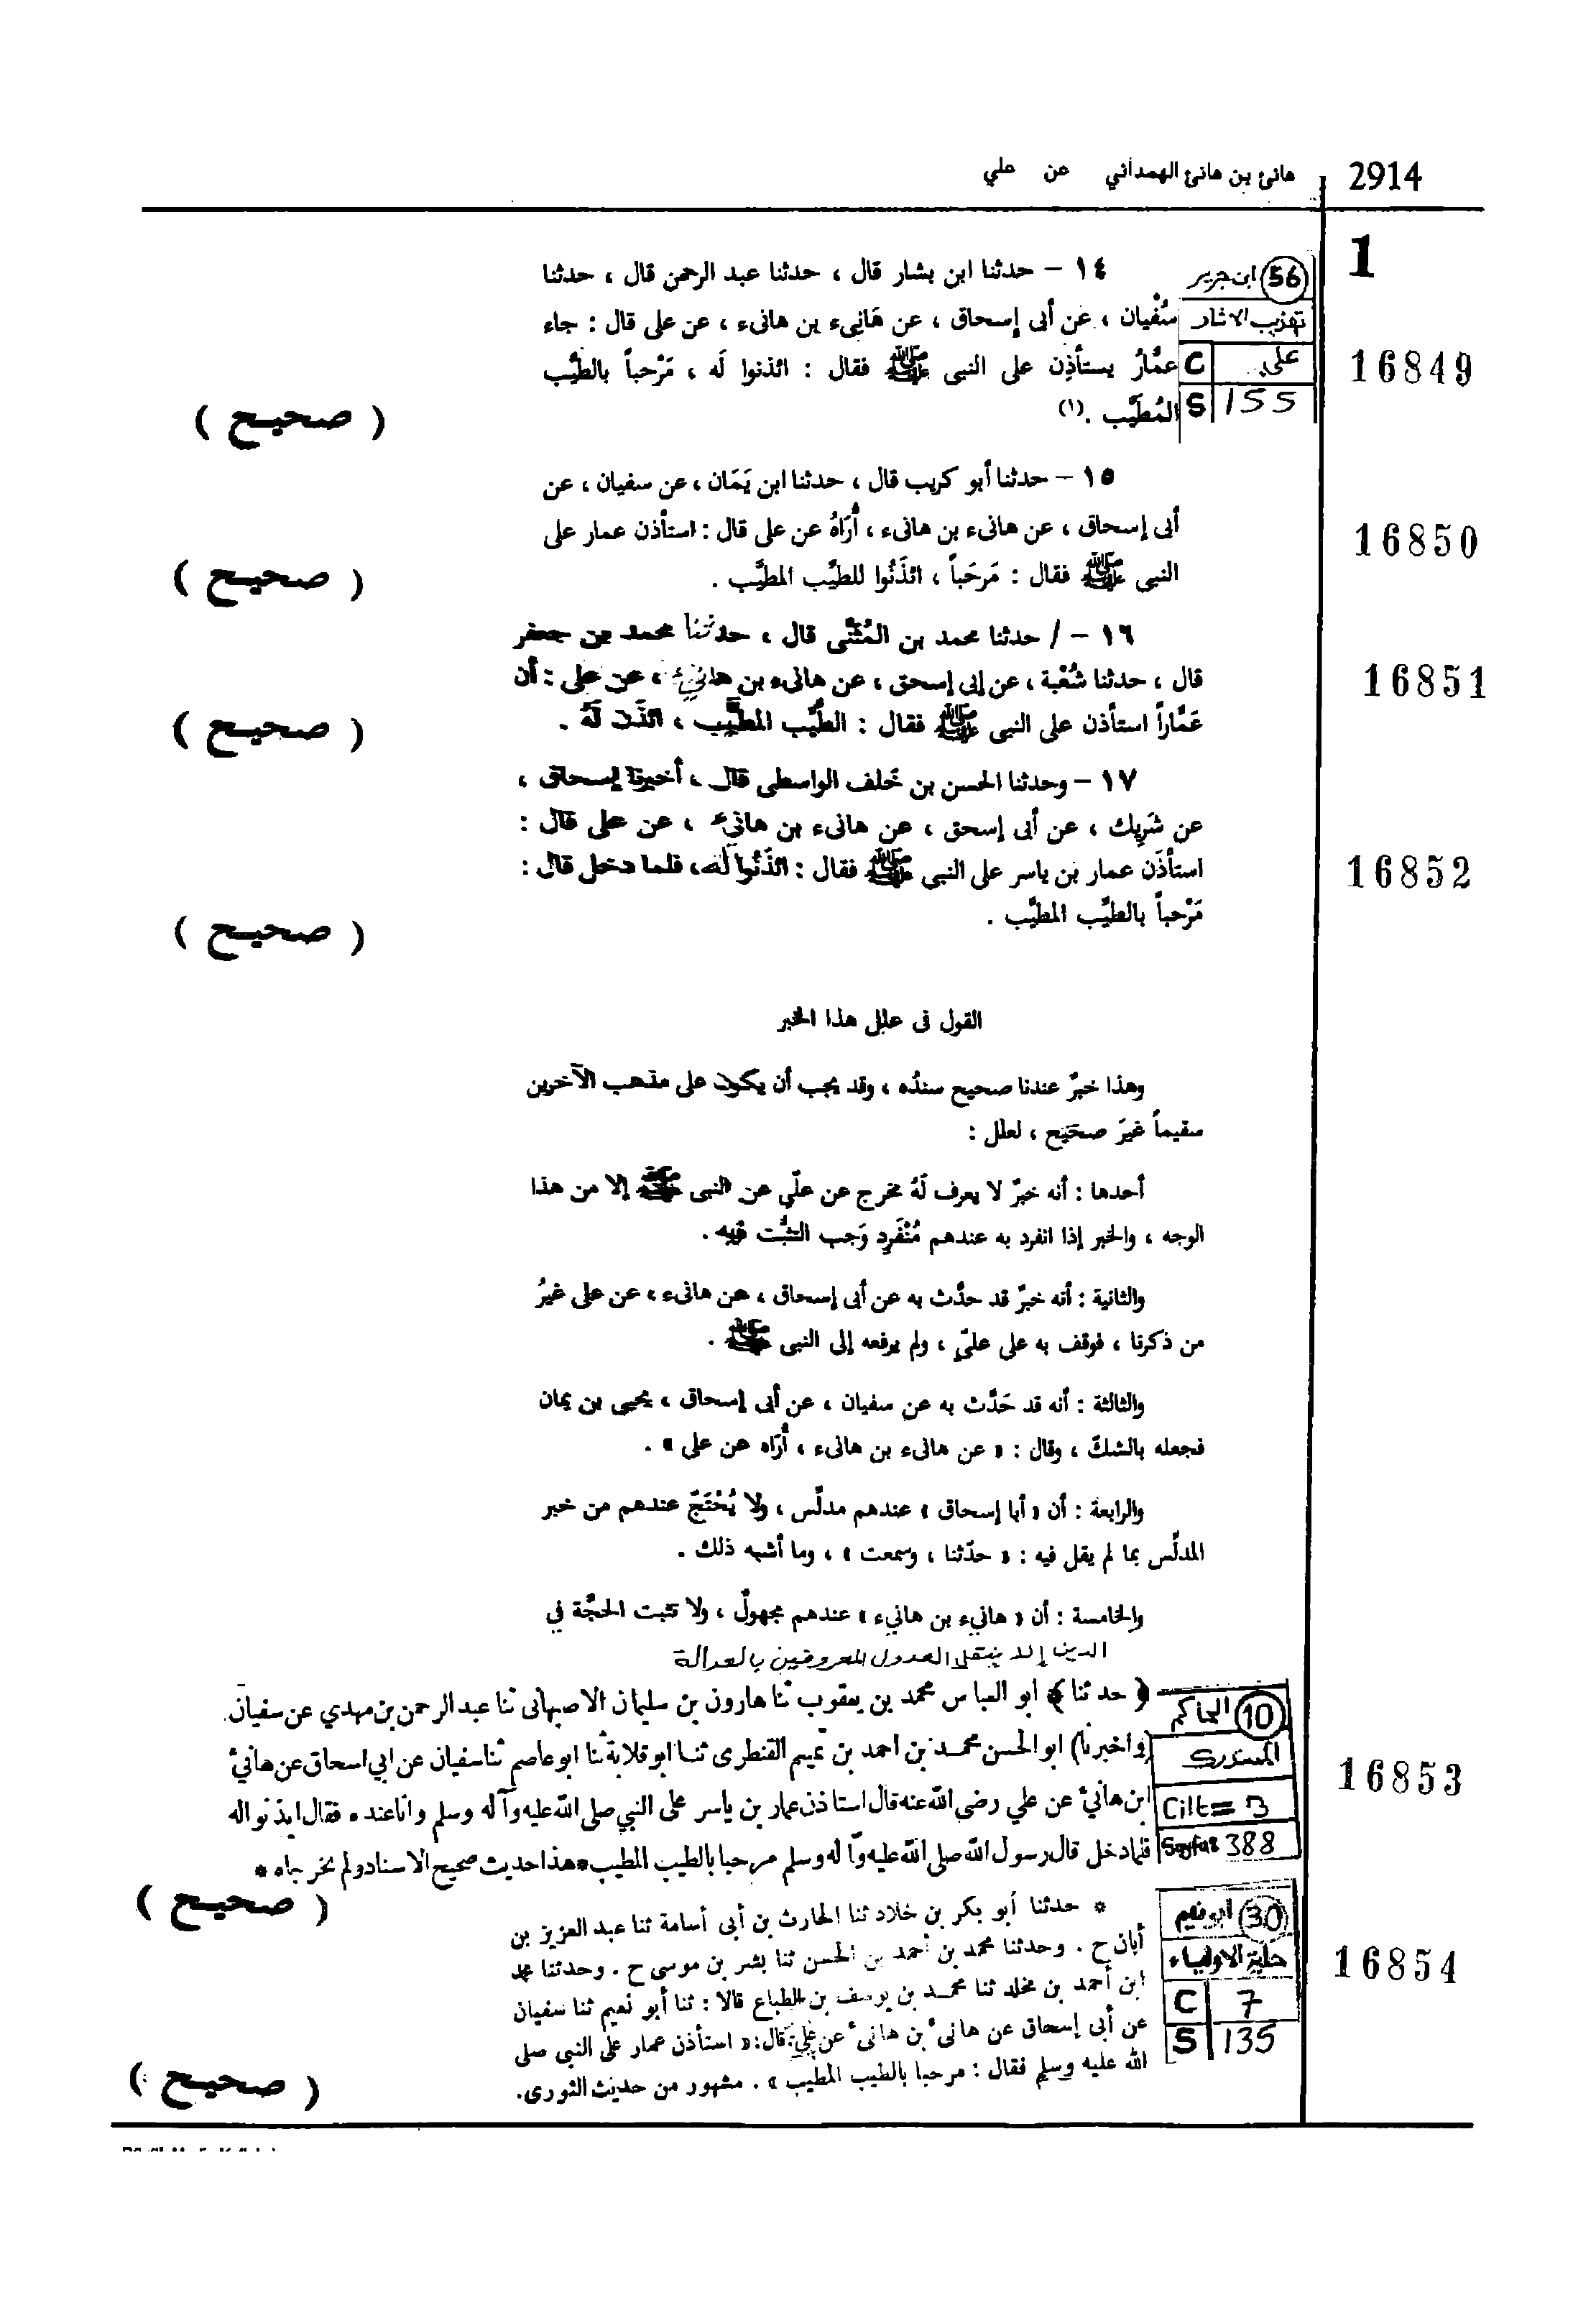 2914 هانئ بن هانئ الهمداني عن علي
1
56 ابن جرير
تهذيب الاثار
علي
C
S 155
١٤ – حدثنا ابن بشار قال ، حدثنا عبد الرحمن قال ، حدثنا
سُفْيان ، عن أبى إسحاق ، عن هَانِىء بن هانىء ، عن على قال : جاء
عمَّارُ يستأذِن على النبى ﷺ فقال : ائذنوا لَه ، مَرْحباً بالطيِّب
المُطيَّب . (١)
16849
( صحيح )
١٥ – حدثنا أبو كريب قال ، حدثنا ابن يَمَان ، عن سفيان ، عن
أبى إسحاق ، عن هانىء بن هانىء ، أُرَاهُ عن على قال : استأذن عمار على
النبى ﷺ فقال : مَرحَباً ، ائذَنُوا للطيِّب المطيَّب .
16850
( صحيح )
١٦ – / حدثنا محمد بن المُثنَّى قال ، حدثنا محمد بن جعفر
قال ، حدثنا شُعْبة ، عن إبى إسحق ، عن هانىء بن هانيء ، عن على : أن
عَمَّاراً استأذن على النبى ﷺ فقال : الطيِّب المطيَّب ، ائذَن لَهُ .
16851
( صحيح )
١٧ – وحدثنا الحسن بن خَلف الواسطى قال ، أخبرنا إسحاق ،
عن شَرِيك ، عن أبى إسحق ، عن هانىء بن هانىء ، عن على قال :
استأذَن عمار بن ياسر على النبى ﷺ فقال : ائذَنُوا لَه ، فلما دخل قال :
مَرْحباً بالطيِّب المطيَّب .
16852
( صحيح )
القول فى علل هذا الخبر
وهذا خبرٌ عندنا صحيح سندُه ، وقد يجب أن يكون على مذهب الآخرين
سقيماً غيرَ صحَيح ، لعلل :
أحدها : أنه خبرٌ لا يعرف لَهُ مخرج عن علّي عن النبى ﷺ إلا من هذا
الوجه ، والخبر إذا انفرد به عندهم مُنْفَرِد وَجب التثبُّت فيه .
والثانية : أنه خبرٌ قد حدَّث به عن أبى إسحاق ، عن هانىء ، عن على غيرُ
من ذكرنا ، فوقف به على علىّ ، ولم يرفعه إلى النبى ﷺ .
والثالثة : أنه قد حَدَّث به عن سفيان ، عن أبى إسحاق ، يحيى بن يمان
فجعله بالشكّ ، وقال : « عن هانىء بن هانىء ، أُرَاه عن على » .
والرابعة : أن « أبا إسحاق » عندهم مدلِّس ، ولا يُحْتَجّ عندهم من خبر
المدلِّس بما لم يقل فيه : « حدّثنا ، وسمعت » ، وما أشبه ذلك .
والخامسة : أن « هانيء بن هانيء » عندهم مجهولٌ ، ولا تثبت الحجَّة في
الدين إلا بنقل العدول المعروفين بالعدالة
10 الحاكم
المستدرك
Cilt = 3
Sayfa: 388
﴿ حدثنا ﴾ ابو العباس محمد بن يعقوب ثنا هارون بن سليمان الاصبهانى ثنا عبد الرحمن بن مهدي عن سفيان
(واخبرنا) ابو الحسن محمد بن احمد بن تميم القنطرى ثنا ابو قلابة ثنا ابو عاصم ثنا سفيان عن ابي اسحاق عن هانئ
ابن هانئ عن علي رضى الله عنه قال استاذن عمار بن ياسر على النبي صلى الله عليه وآله وسلم وانا عنده فقال ايذنوا له
فلما دخل قال رسول الله صلى الله عليه وآله وسلم مرحبا بالطيب المطيب * هذا حديث صحيح الاسناد ولم يخرجاه *
16853
( صحيح )
30 ابو نعيم
حلية الاولياء
C 7
S 135
* حدثنا أبو بكر بن خلاد ثنا الحارث بن أبى أسامة ثنا عبد العزيز بن
أبان ح . وحدثنا محمد بن أحمد بن الحسن ثنا بشر بن موسى ح . وحدثنا محمد
ابن أحمد بن مخلد ثنا محمد بن يوسف بن الطباع قالا : ثنا أبو نعيم ثنا سفيان
عن أبى إسحاق عن هانىء بن هانىء عن علي قال : « استأذن عمار على النبى صلى
الله عليه وسلم فقال : مرحبا بالطيب المطيب » . مشهور من حديث الثورى .
16854
( صحيح )